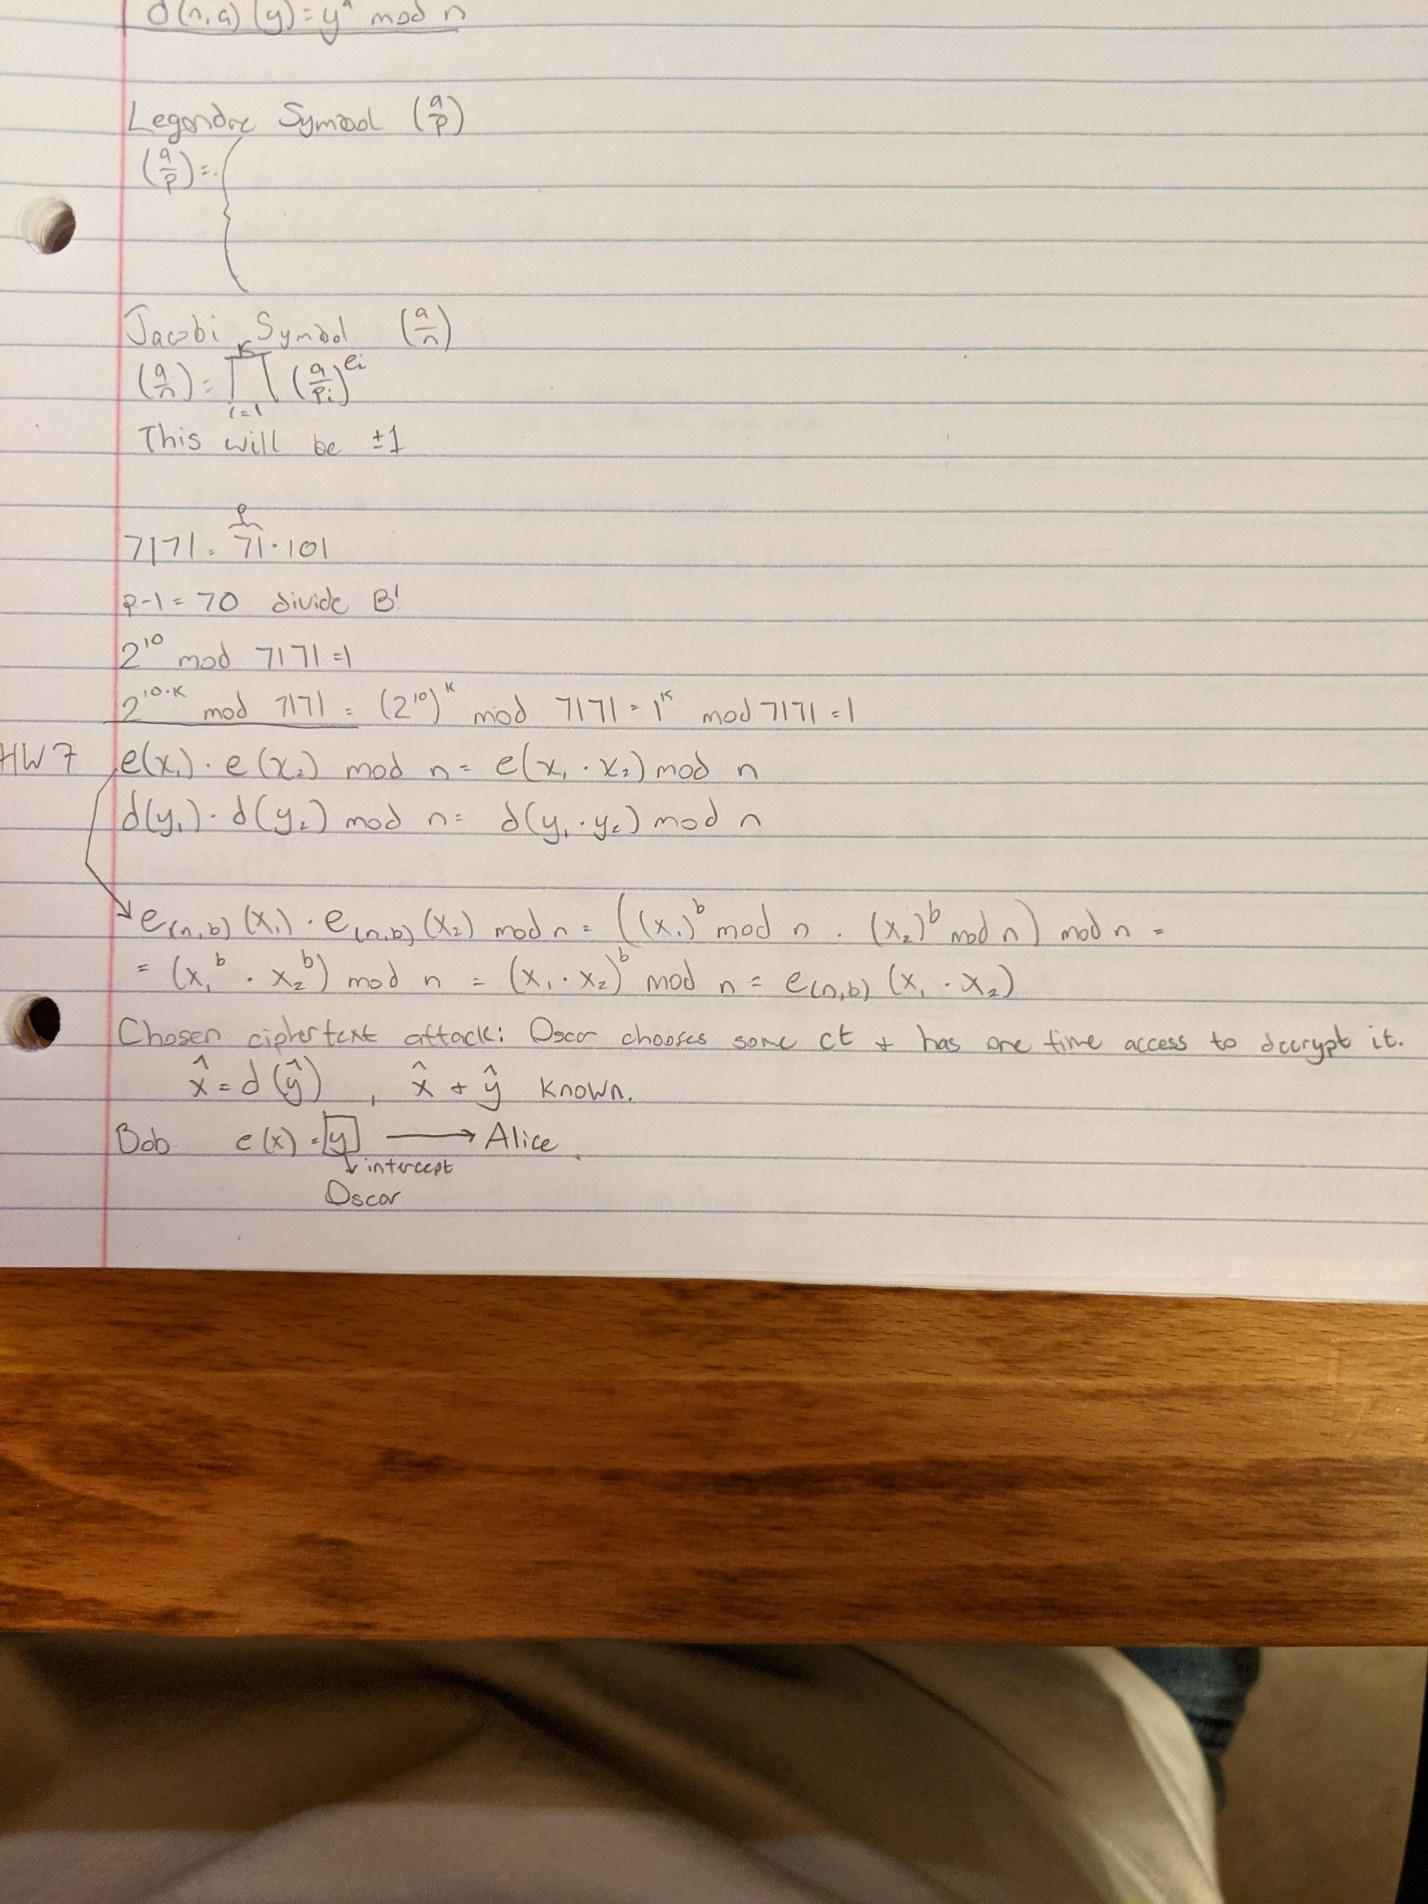 d(n,a) (y) = y^a mod n
Legendre Symbol (a/p)
(a/p) = {
Jacobi Symbol (a/n)
(a/n) = ∏_{i=1}^{k} (a/p_i)^{e_i}
This will be ±1
p
7171 = 71·101
p-1 = 70 divide B!
2^10 mod 7171 = 1
2^{10·k} mod 7171 = (2^10)^k mod 7171 = 1^k mod 7171 = 1
HW7 e(x₁)·e(x₂) mod n = e(x₁·x₂) mod n
d(y₁)·d(y₂) mod n = d(y₁·y₂) mod n
e_(n,b) (x₁)·e_(n,b) (x₂) mod n = ((x₁)^b mod n · (x₂)^b mod n) mod n =
= (x₁^b · x₂^b) mod n = (x₁·x₂)^b mod n = e_(n,b) (x₁·x₂)
Chosen ciphertext attack: Oscar chooses some ct + has one time access to decrypt it.
x̂ = d(ŷ) , x̂ + ŷ known.
Bob e(x) = y → Alice
↓ intercept
Oscar